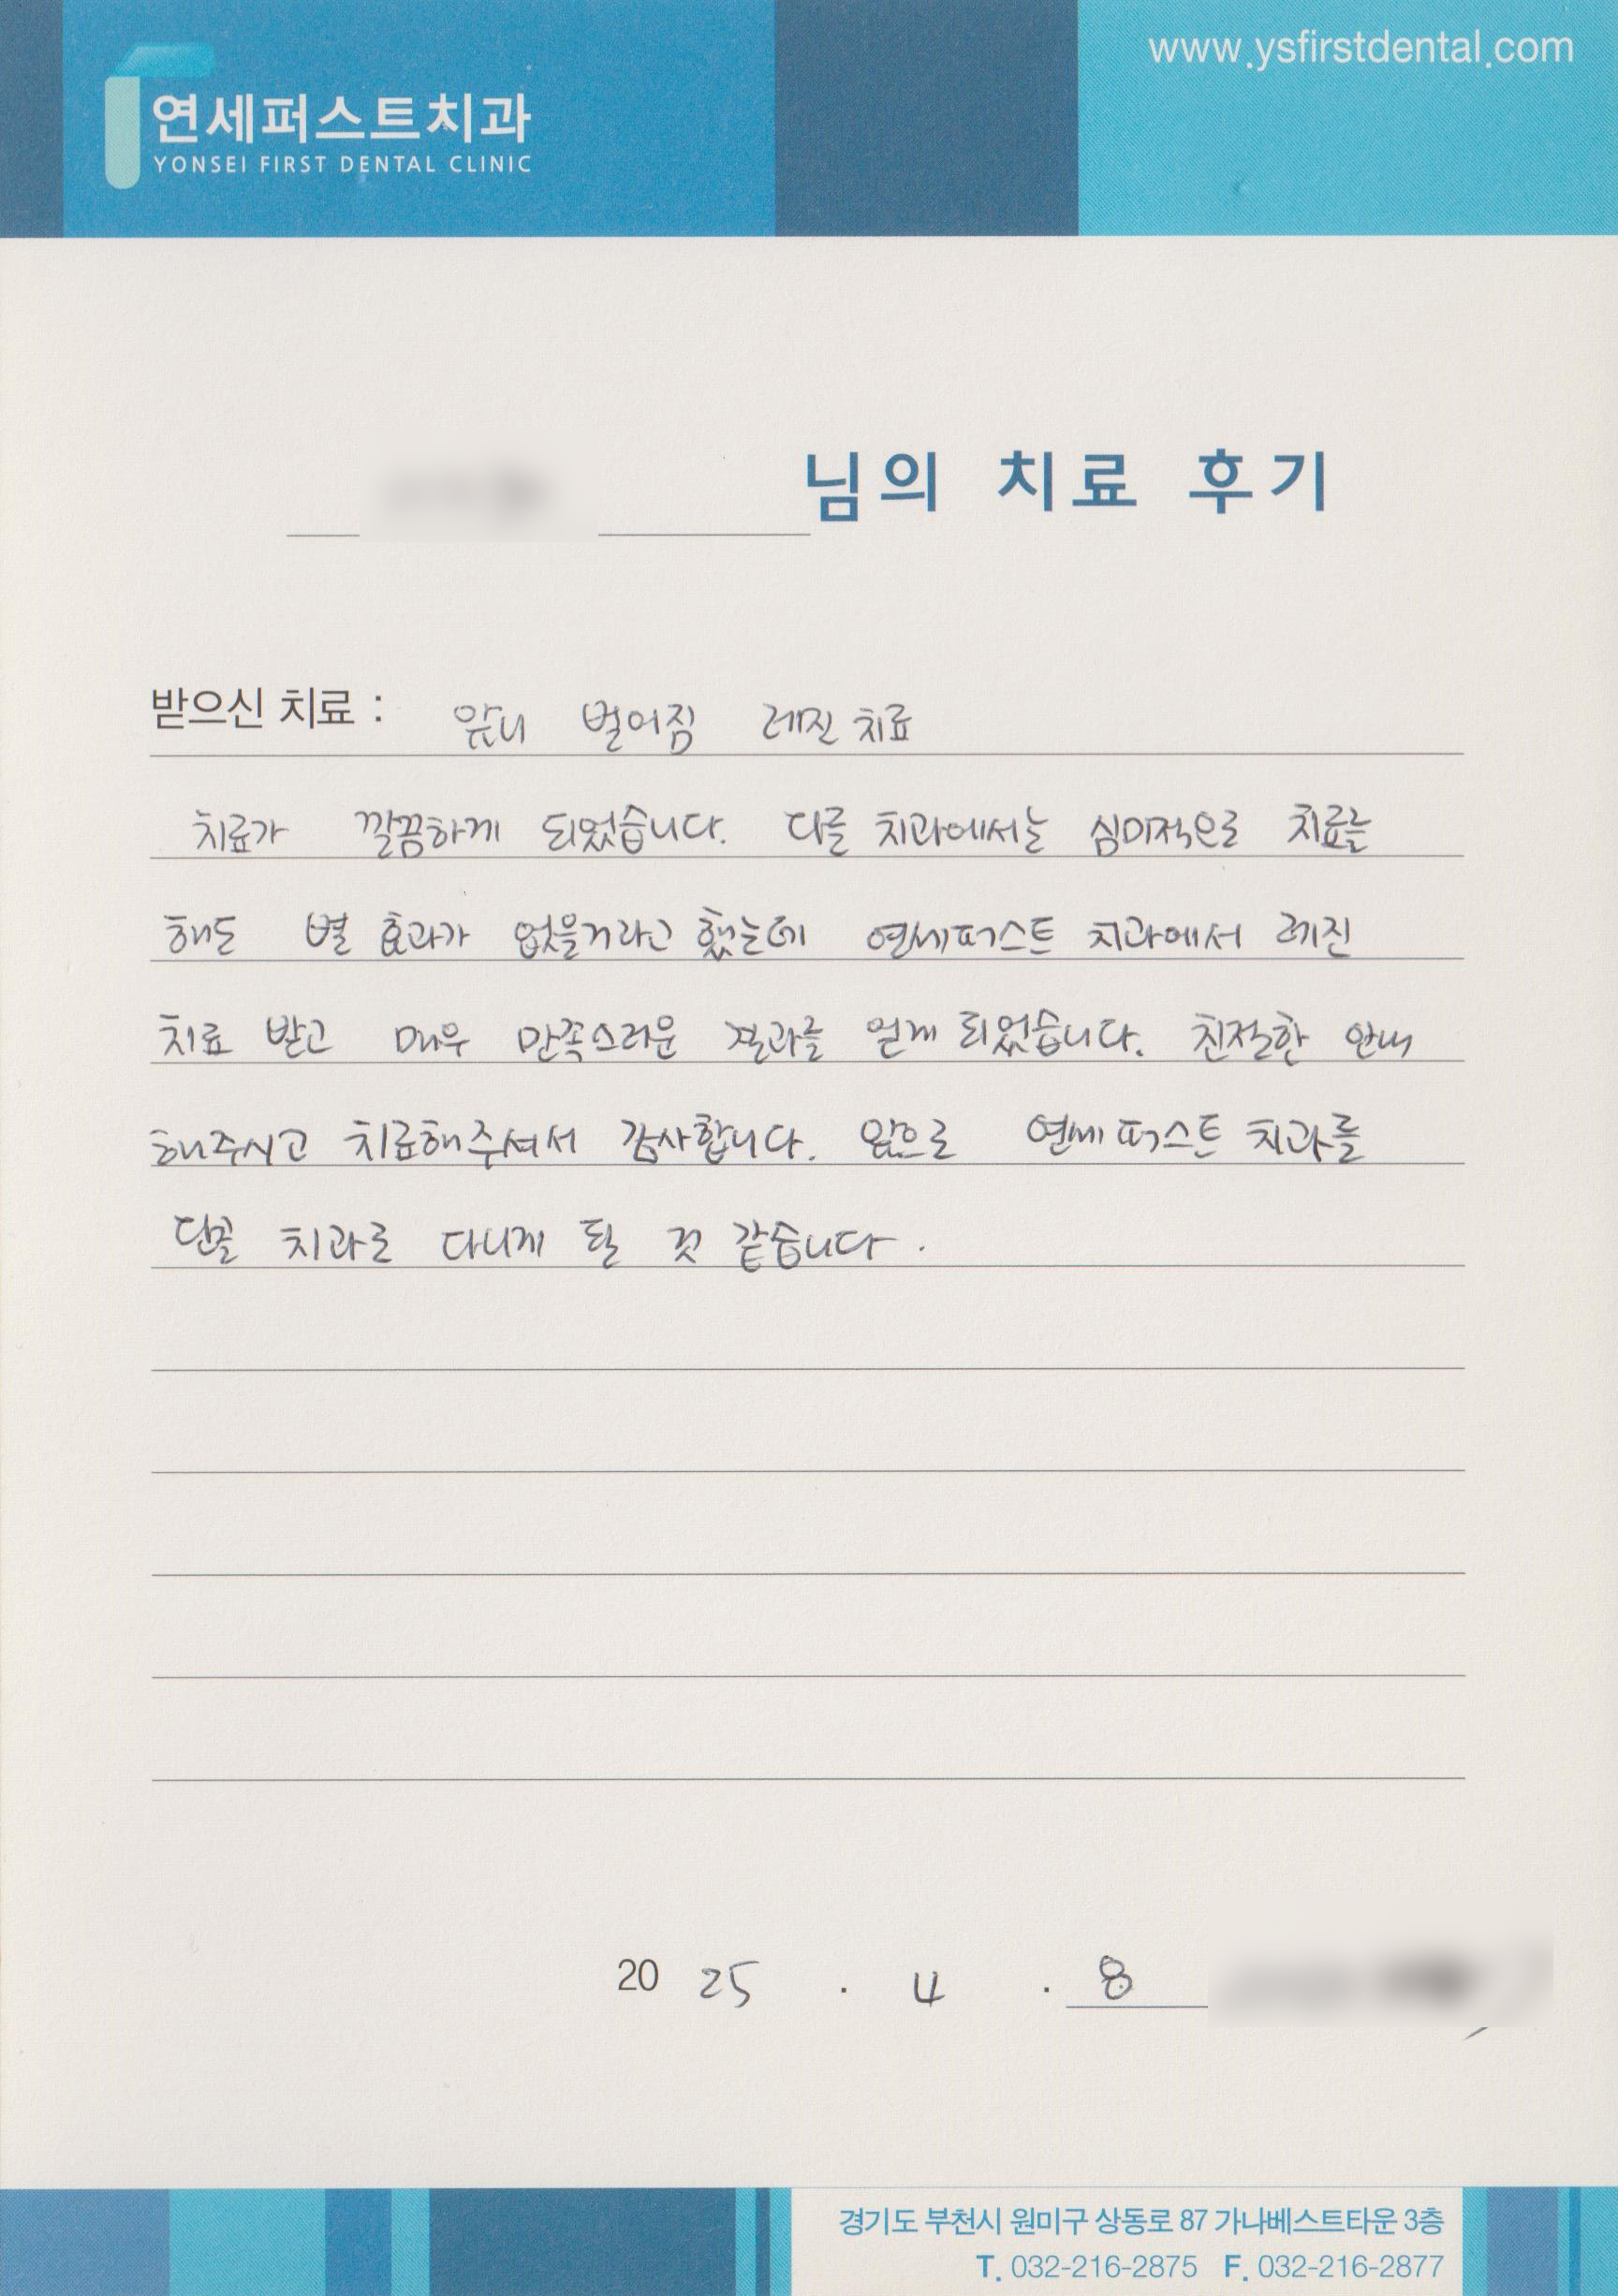 연세퍼스트치과
YONSEI FIRST DENTAL CLINIC
www.ysfirstdental.com
님의 치료 후기
받으신 치료 : 앞니 벌어짐 레진 치료
치료가 깔끔하게 되었습니다. 다른 치과에서는 심미적으로 치료를
해도 별 효과가 없을거라고 했는데 연세퍼스트 치과에서 레진
치료 받고 매우 만족스러운 결과를 얻게 되었습니다. 친절한 안내
해주시고 치료해주셔서 감사합니다. 앞으로 연세퍼스트 치과를
단골 치과로 다니게 될 것 같습니다.
20 25 . 4 . 8
경기도 부천시 원미구 상동로 87 가나베스트타운 3층
T. 032-216-2875 F. 032-216-2877